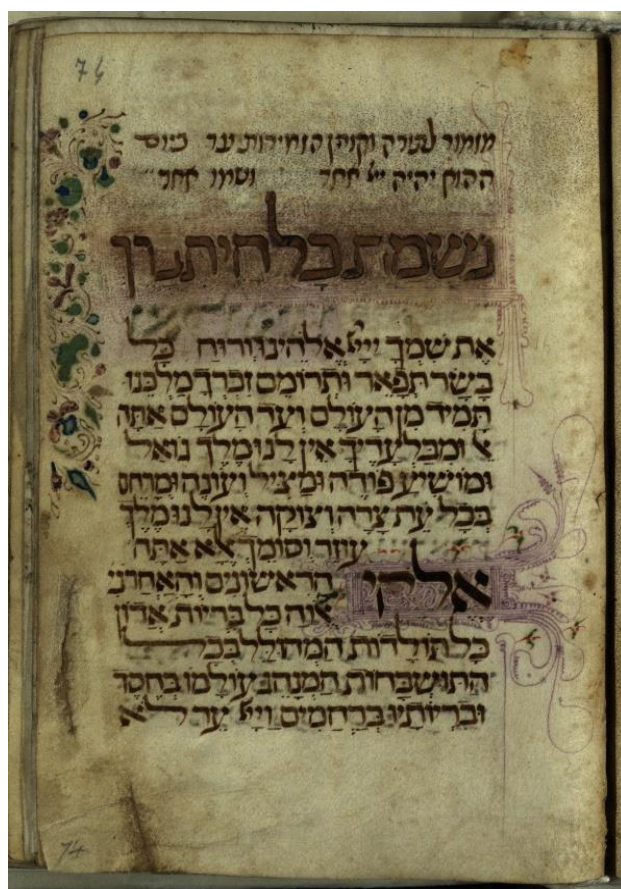 74
מזמור לערה וקוהן הזמירות עד ביום
ההוא יהיה ייי אחד ושמו אחד
נשמת כל חי תברך
את שמך ייי אלהינו ורוח כל
בשר תפאר ותרומם זכרך מלכנו
תמיד מן העולם ועד העולם אתה
ומבלעדיך אין לנו מלך גואל
ומושיע פודה ומציל ועונה ומרחם
בכל עת צרה וצוקה אין לנו מלך
עוזר וסומך אלא אתה
אלהי הראשונים והאחרני
אלוה כל בריות אדון
כל תולדות המהולל בכל
התושבחות המנהג עולמו בחסד
ובריותיו ברחמים וייי ער לא
74